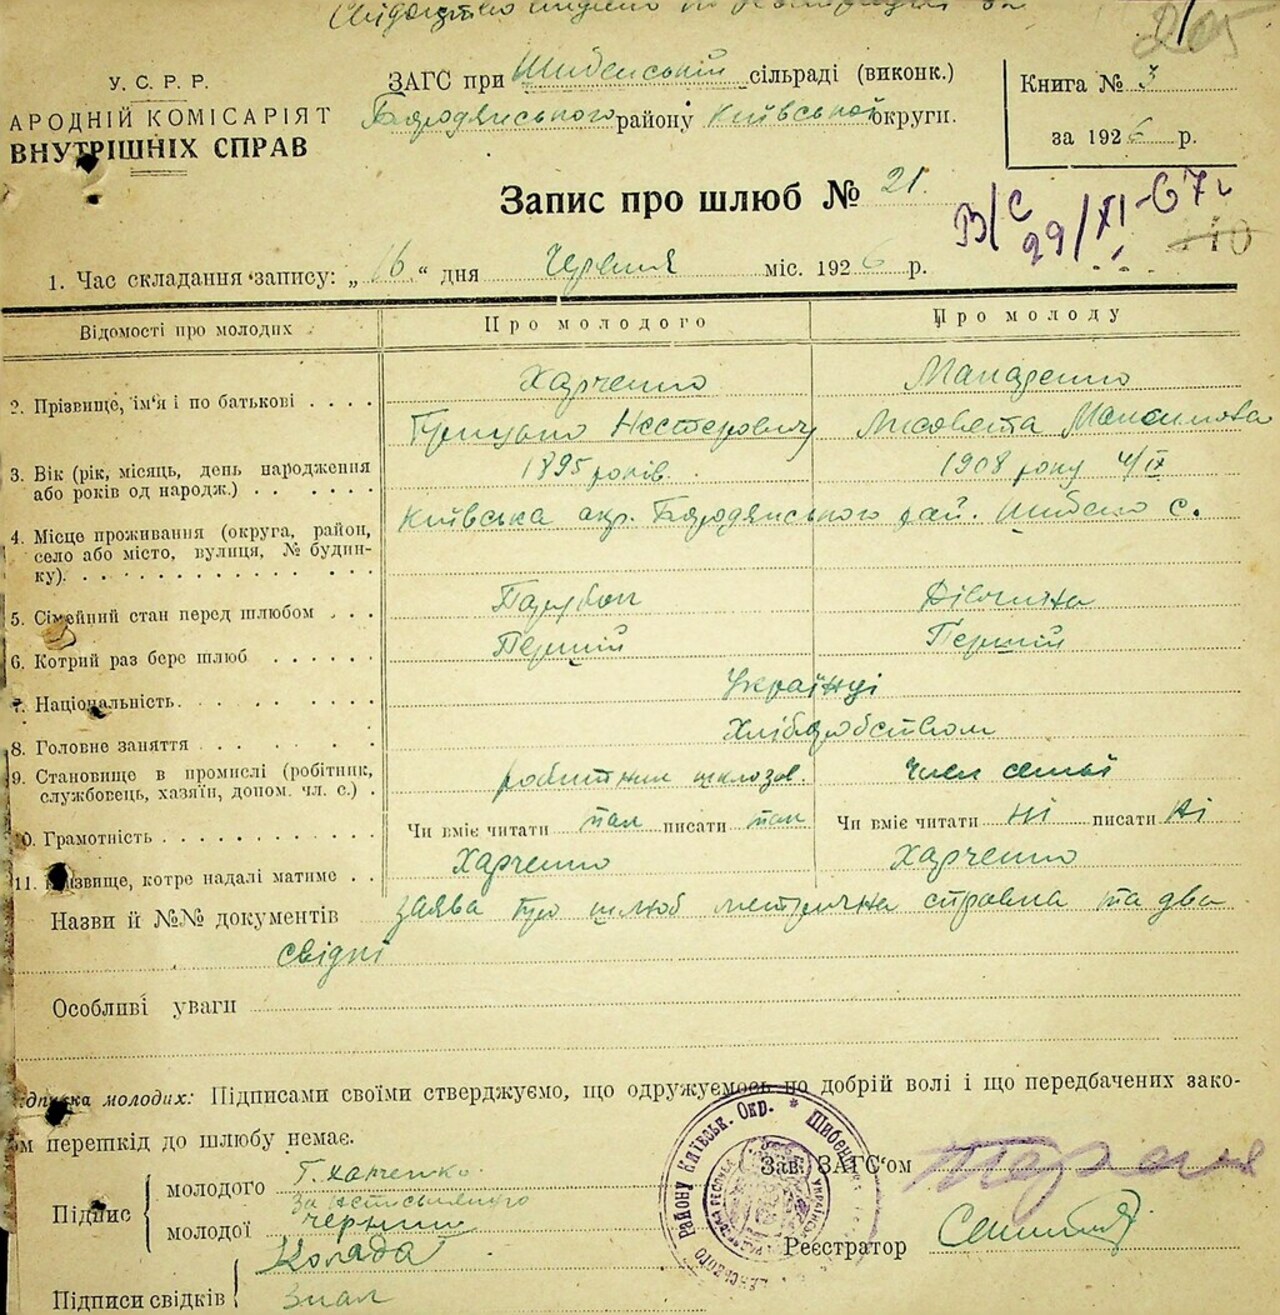 У. С. Р. Р.
АРОДНІЙ КОМІСАРІЯТ
ВНУТРІШНІХ СПРАВ
ЗАГС при Шибенській сільраді (виконк.)
Бородянського району Київської округи.
Книга № 3
за 1926 р.
Запис про шлюб № 21.
В/С 29/XI-67 г
1. Час складання запису: „16“ дня Червня міс. 1926 р.
Відомості про молодих Про молодого Про молоду
Харченко Макаренко
2. Прізвище, ім'я і по батькові . . . .
Грицько Нестерович Лисовета Максимовна
3. Вік (рік, місяць, день народження або років од народж.) 1895 років. 1908 року 4/IX
4. Місце проживання (округа, район, село або місто, вулиця, № будинку). Київська окр. Бородянського рай. Шибено с.
5. Сімейний стан перед шлюбом . . . Парубок Дівчина
6. Котрий раз бере шлюб . . . . . . Перший Перший
7. Національність. Українці
8. Головне заняття Хліборобством
9. Становище в промислі (робітник, службовець, хазяїн, допом. чл. с.) . робітник шклозав. член семьі
0. Грамотність Чи вміє читати так писати так Чи вміє читати ні писати ні
11. ізвище, котре надалі матиме . . Харченко Харченко
Назви й №№ документів заява про шлюб метрична справка та два
свідкі
Особливі уваги
дписка молодих: Підписами своїми стверджуємо, що одружуємось по добрій волі і що передбачених зако-
ом перешкід до шлюбу немає.
Підпис молодого Г. Харченко.
За неписьменну
молодої
Коляда
Підписи свідків
Зав. ЗАГС'ом
Реєстратор
району Київськ. Окр. * Шибен